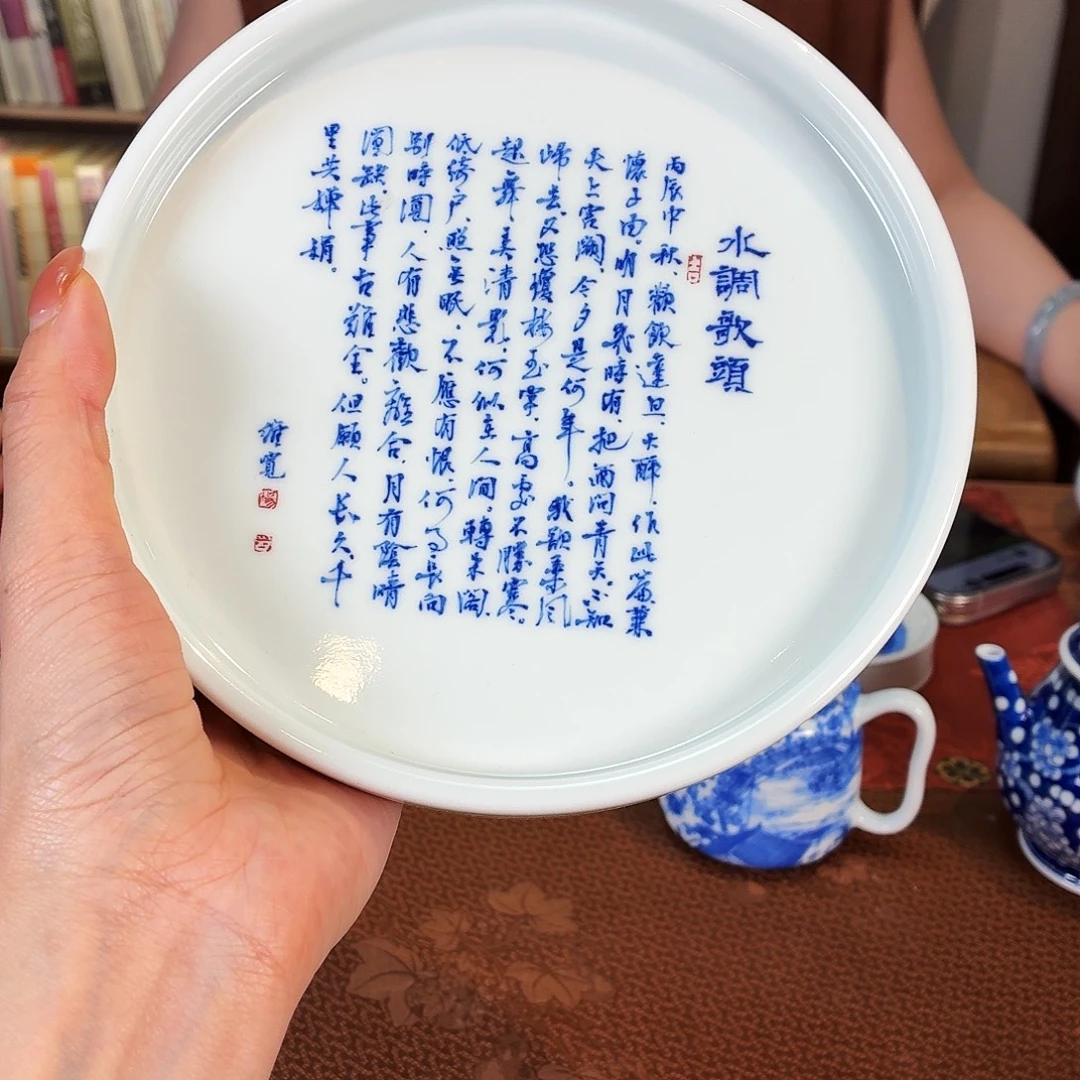 水調歌頭
丙辰中秋,歡飲達旦,大醉,作此篇,兼
懷子由,明月幾時有,把酒問青天,不知
天上宮闕,今夕是何年。我欲乘风
歸去,又恐瓊樓玉宇,高處不勝寒。
起舞弄清影,何似在人間。轉朱閣,
低綺户,照無眠。不應有恨,何事長向
别時圓,人有悲歡離合,月有陰晴
圓缺,此事古難全。但願人長久,千
里共嬋娟。